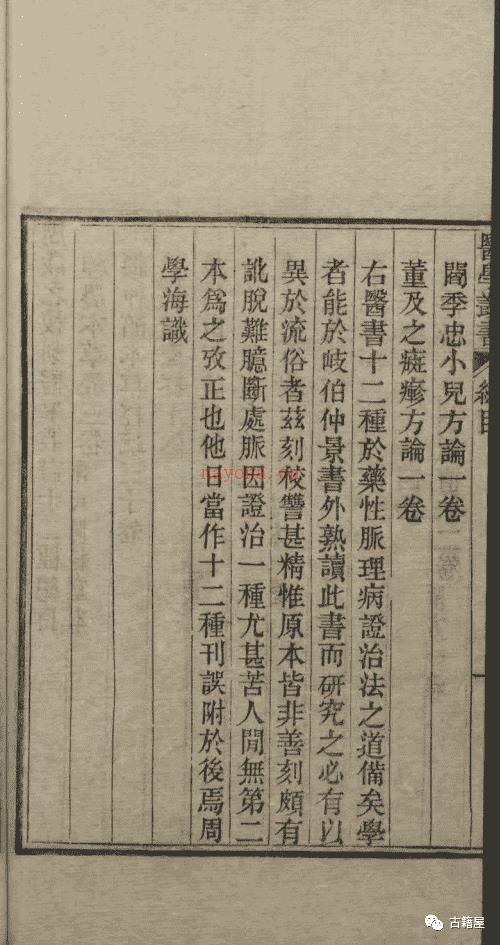 醫學叢書 總目
閻季忠小兒方論一卷
董及之癍瘮方論一卷
右醫書十二種於藥性脈理病證治法之道備矣學
者能於岐伯仲景書外熟讀此書而研究之必有以
異於流俗者茲刻校讐甚精惟原本皆非善刻頗有
訛脫難臆斷處脈因證治一種尤甚苦人閒無第二
本爲之攷正也他日當作十二種刊誤附於後焉周
學海識
古籍屋